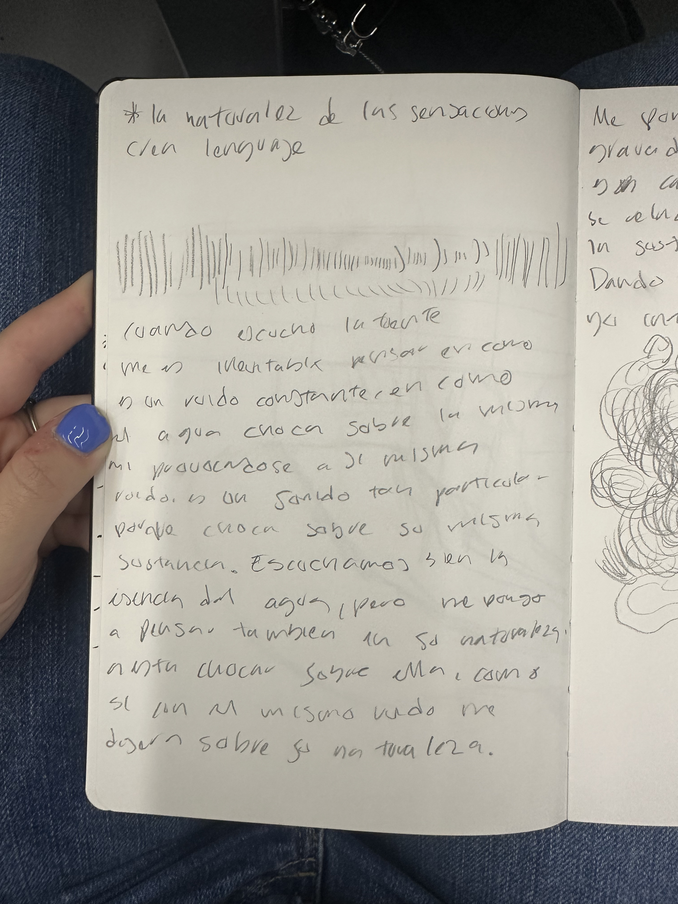 * la naturalez de las sensacions
cren lenguaje
cuando escucho la fuente
me es inevitable pensar en como
es un ruido constante, en como
el agua choca sobre la misma
provocandose a si misma
ruido. es un sonido tan particular
porque choca sobre su misma
sustancia. Escuchamos bien la
esencia del agua, pero me pongo
a pensar tambien en su naturaleza.
chocar sobre ella, como
si con el mismo ruido me
dijera sobre su naturaleza.
Me
se
la
Dando